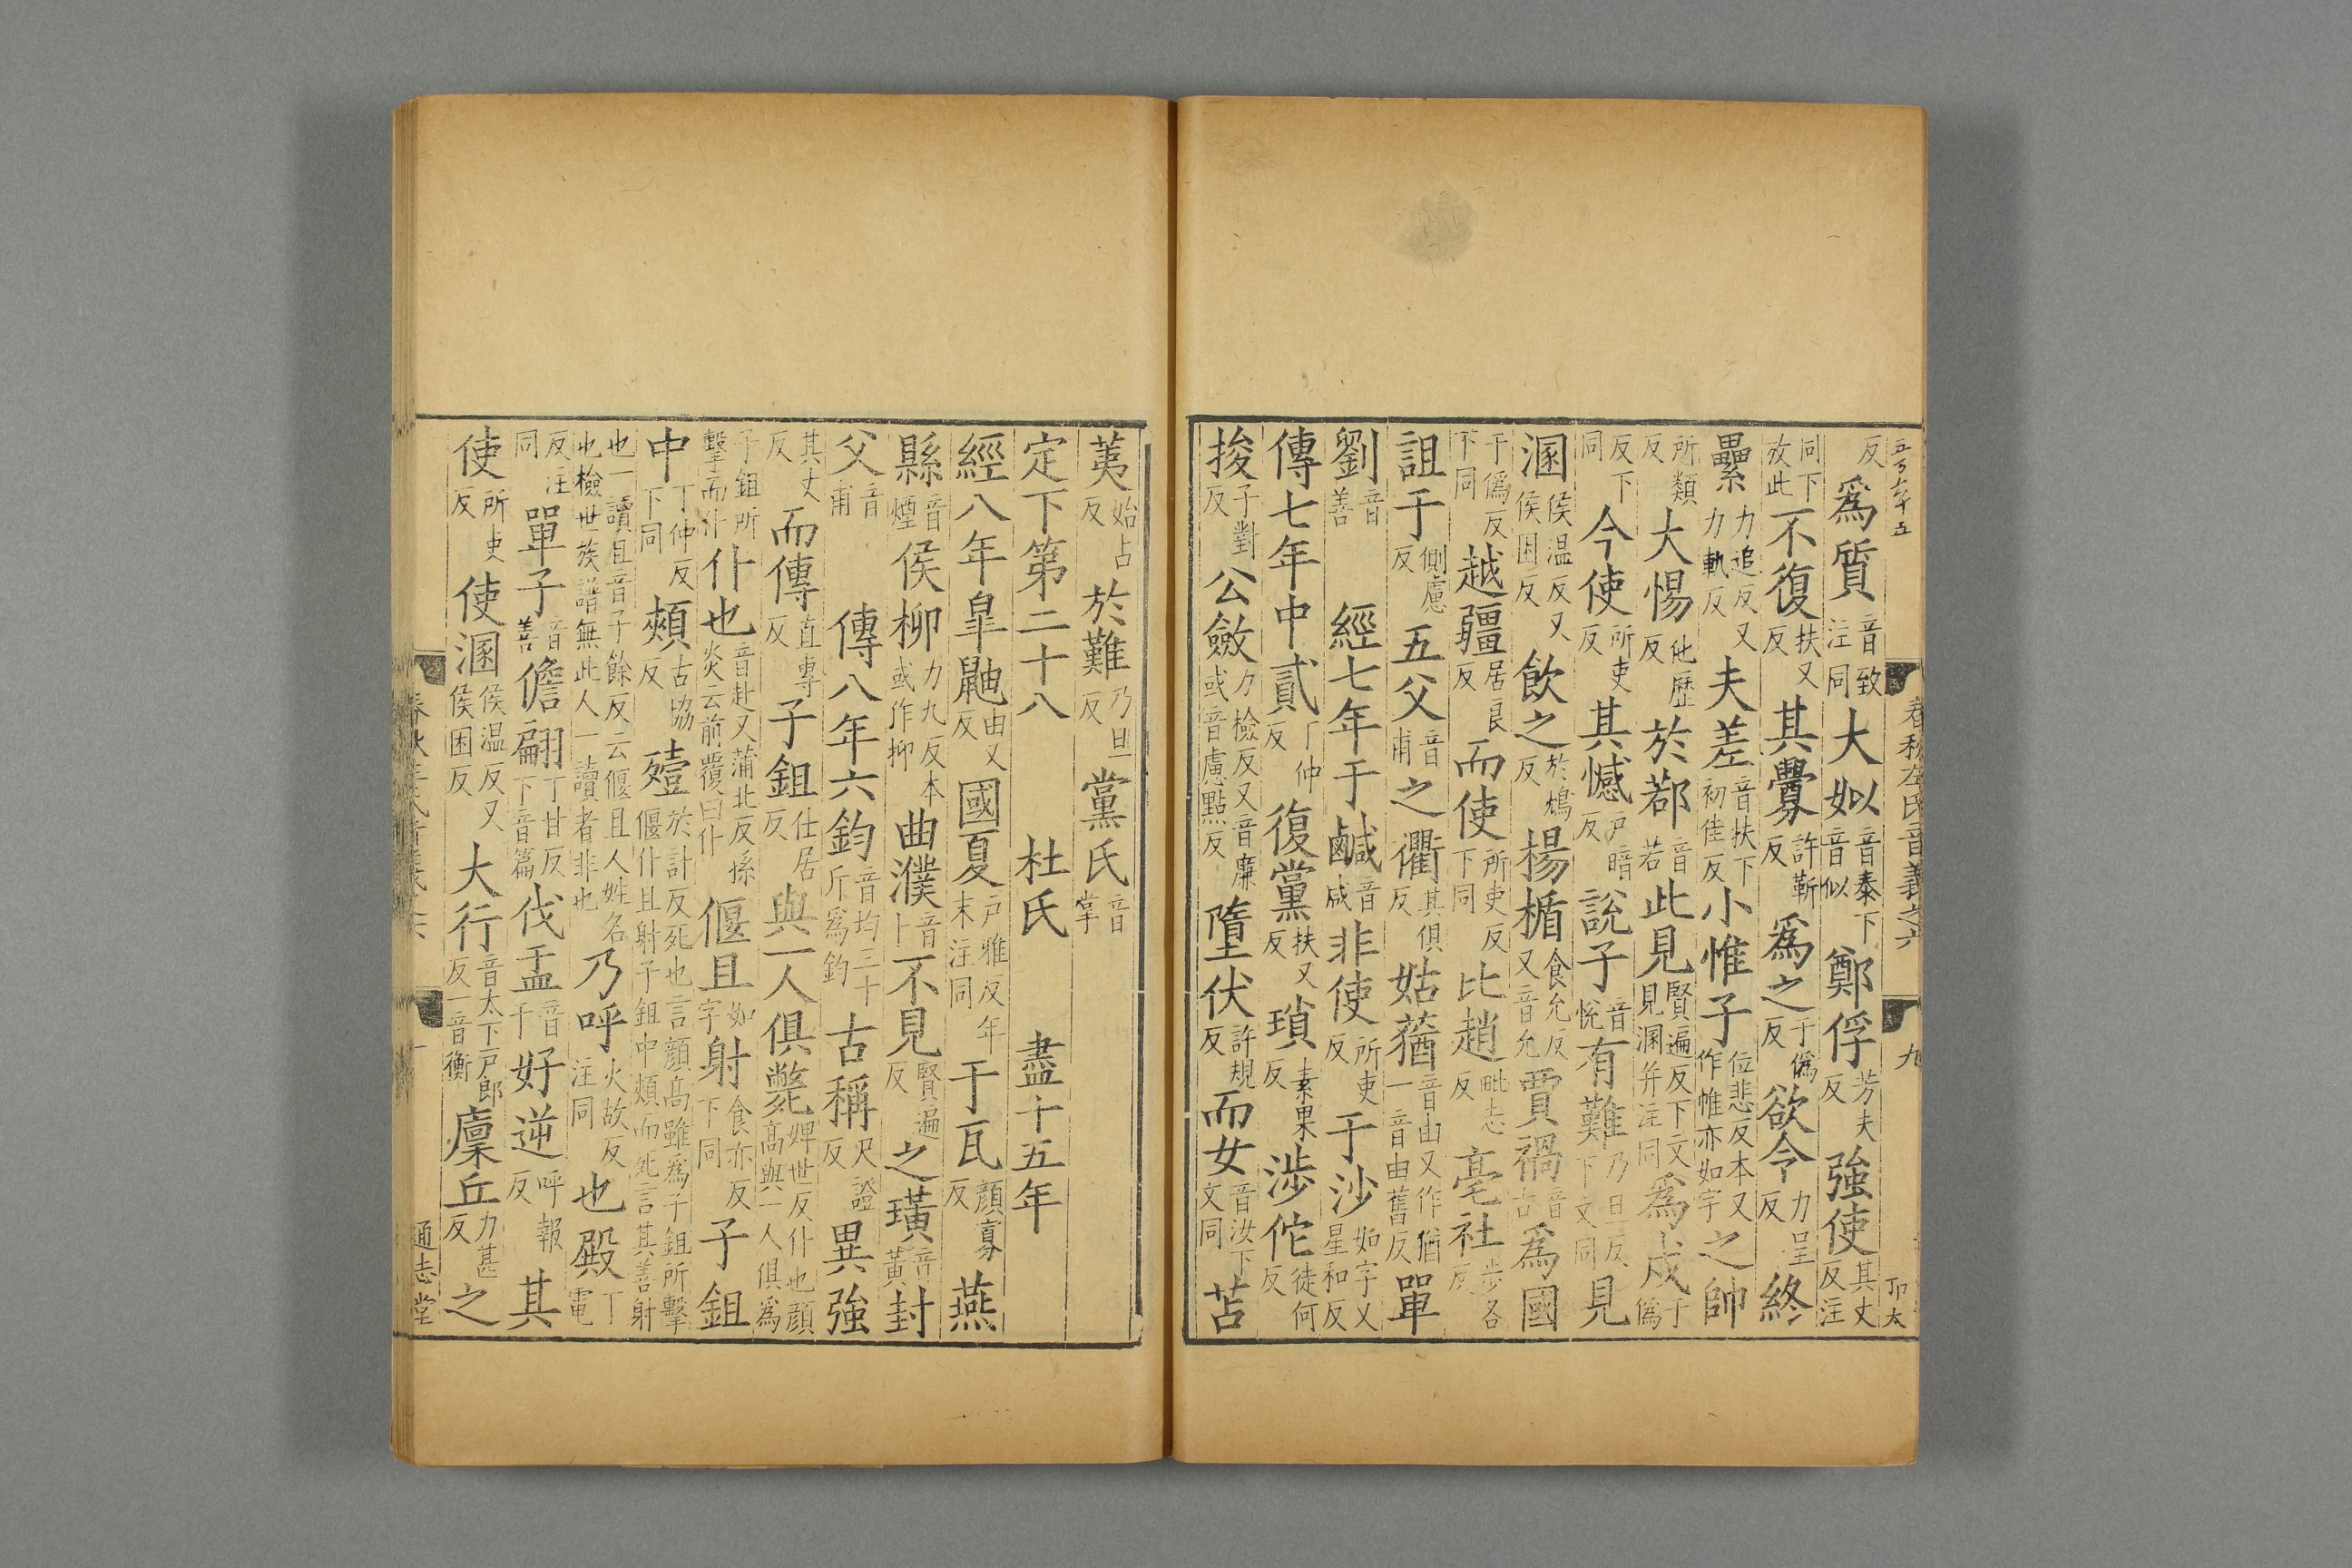 反爲質音致注同大姒音泰下音似鄭俘芳夫反強使其丈反注
同下攻此不復扶又反其釁許靳反爲之于僞反欲令力呈反終
纍力追反又力軌反夫差音扶下初佳反小惟子位悲反本又作帷亦如字之帥
所類反大惕他歷反於鄀音若此見賢遍反下文見溷并注同爲戍于僞
反下同今使所吏反其憾戶暗反說子音悅有難乃旦反下文同見
溷侯温反又侯困反飲之於鴆反楊楯食允反又音允賈禍音古爲國
于僞反下同越疆居良反而使所吏反下同比趙毗志反亳社步各反
詛于側慮反五父音甫之衢其俱反姑蕕音由又作猶一音由舊反單
劉音善經七年于鹹音咸非使所吏反于沙如字又星和反
傳七年中貳丁仲反復黨扶又反瑣素果反涉佗徒何反
捘子對反公斂力檢反又音廉或音慮點反墮伏許規反而女音汝下文同苫
五百六十五
春秋左氏音義之六
九
卬太
荑始占反於難乃旦反黨氏音掌
定下第二十八 杜氏 盡十五年
經八年皐鼬由又反國夏戶雅反年末注同于瓦顔寡反燕
縣音煙侯柳力九反本或作抑曲濮音卜不見賢遍反之璜音黃封
父音甫傳八年六鈞音均三十斤爲鈞古稱尺證反異強
其丈反而傳直專反子鉏仕居反與一人俱斃婢世反仆也顔高與一人俱爲
子鉏所擊而仆仆也音赴又蒲北反孫炎云前覆曰仆偃且如字射食亦反下同子鉏
中丁仲反下同頰古協反殪於計反死也言顔高雖爲子鉏所擊偃仆且射子鉏中頰而死言其善射
也一讀且音子餘反云偃且人姓名也檢世族譜無此人一讀者非也乃呼火故反注同也殿丁電
反注同單子音善儋翩丁甘反下音篇伐盂音于好逆呼報反其
使所吏反使溷侯温反又侯困反大行音太下戶郎反一音衡廩丘力甚反之
春秋左氏音義之六
通志堂